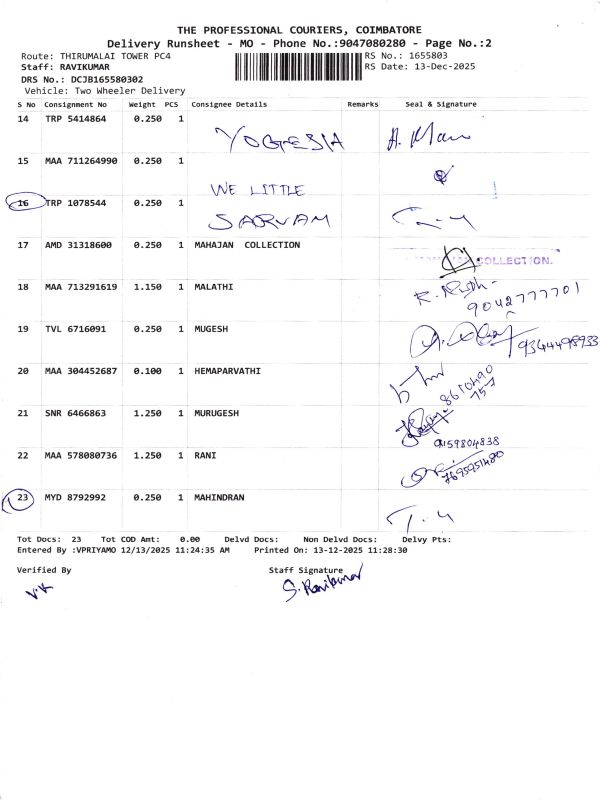 THE PROFESSIONAL COURIERS, COIMBATORE
Delivery Runsheet - MO - Phone No.:9047080280 - Page No.:2
Route: THIRUMALAI TOWER PC4 RS No.: 1655803
Staff: RAVIKUMAR RS Date: 13-Dec-2025
DRS No.: DCJB165580302
Vehicle: Two Wheeler Delivery
S No Consignment No Weight PCS Consignee Details Remarks Seal & Signature
14 TRP 5414864 0.250 1
15 MAA 711264990 0.250 1
WE LITTLE
16 TRP 1078544 0.250 1
SARVAM
17 AMD 31318600 0.250 1 MAHAJAN COLLECTION COLLECTION.
18 MAA 713291619 1.150 1 MALATHI
9042777701
19 TVL 6716091 0.250 1 MUGESH
9344498933
20 MAA 304452687 0.100 1 HEMAPARVATHI
21 SNR 6466863 1.250 1 MURUGESH
9159804838
22 MAA 578080736 1.250 1 RANI
7695951480
23 MYD 8792992 0.250 1 MAHINDRAN
Tot Docs: 23 Tot COD Amt: 0.00 Delvd Docs: Non Delvd Docs: Delvy Pts:
Entered By :VPRIYAMO 12/13/2025 11:24:35 AM Printed On: 13-12-2025 11:28:30
Verified By Staff Signature
V.K S. Ravikumar